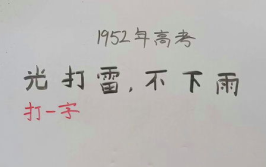 1952年高考
光打雷，不下雨
打一字